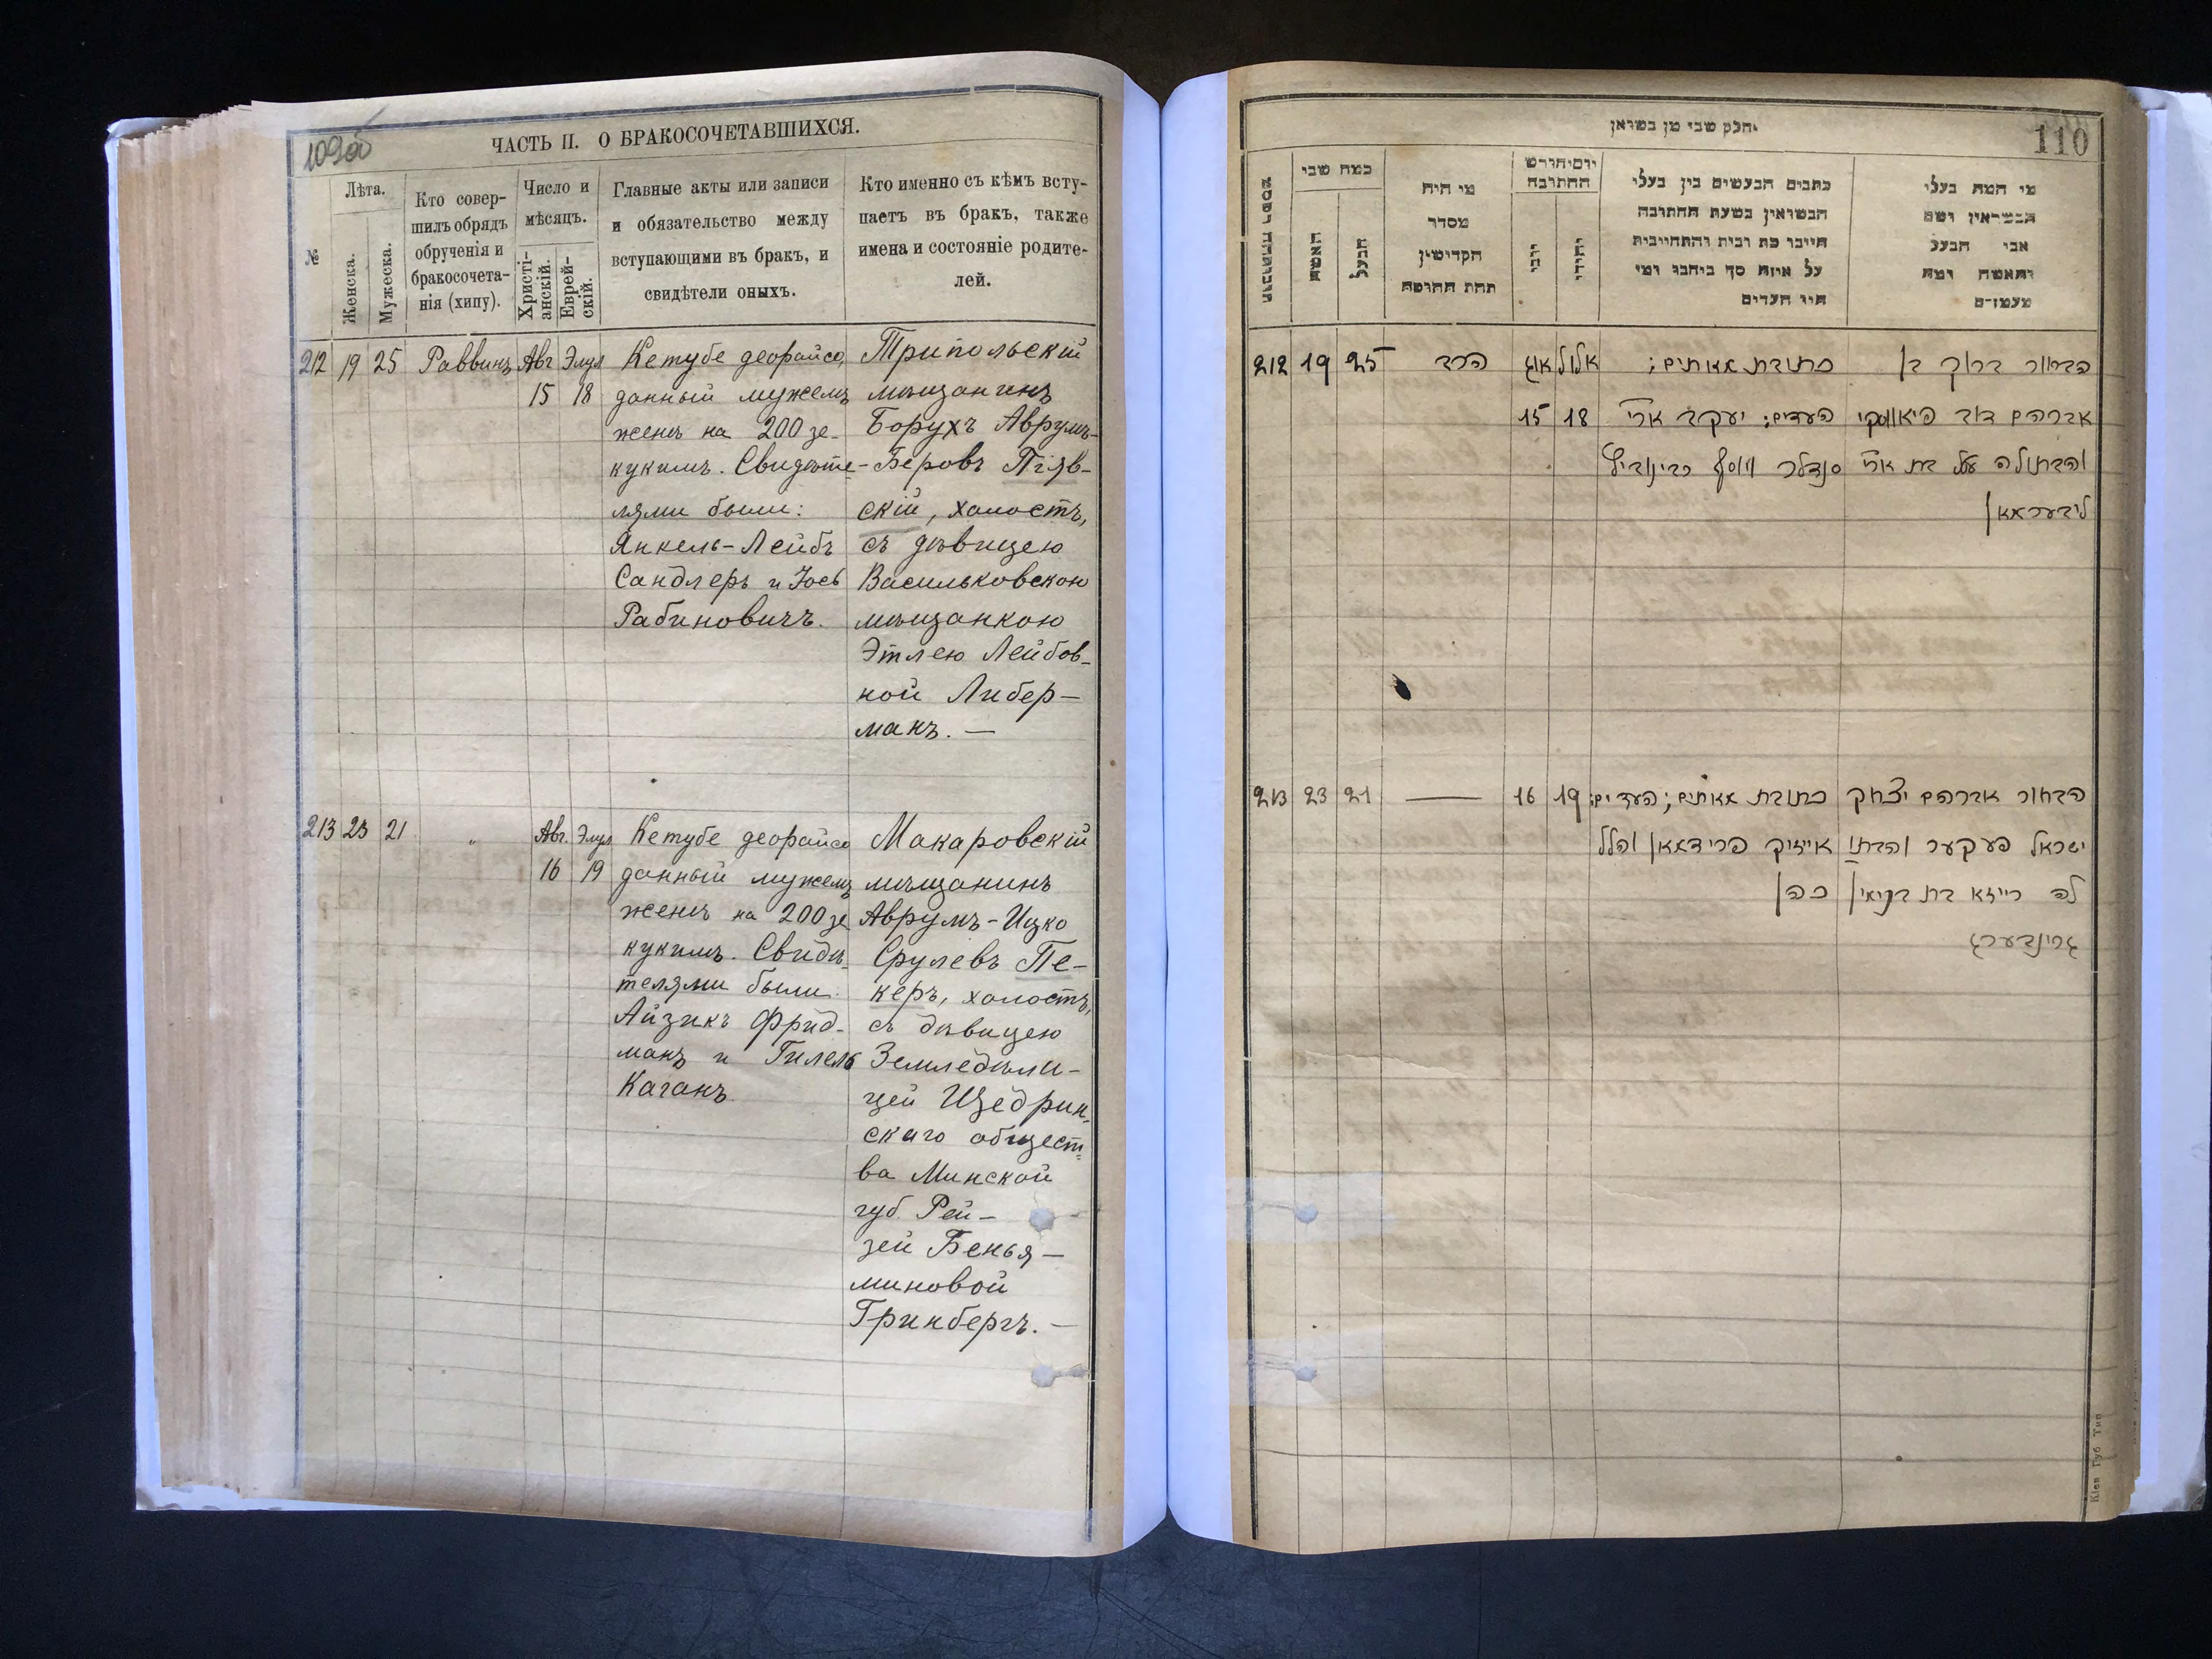 109об
ЧАСТЬ II. О БРАКОСОЧЕТАВШИХСЯ.
№
Лѣта.
Женска.
Мужеска.
Кто совер-
шилъ обрядъ
обрученія и
бракосочета-
нія (хипу).
Число и
мѣсяцъ.
Христі-
анскій.
Еврей-
скій.
Главные акты или записи
и обязательство между
вступающими въ бракъ, и
свидѣтели оныхъ.
Кто именно съ кѣмъ всту-
паетъ въ бракъ, также
имена и состояніе родите-
лей.
212 19 25 Раввинъ Авг Элул
15 18
Кетубе деорайсо,
данный мужемъ
женѣ на 200 зе-
кукимъ. Свидѣте-
лями были:
Янкель-Лейбъ
Сандлеръ и Іось
Рабиновичъ.
Трипольскій
мѣщанинъ
Борухъ Аврумъ-
Беровъ Піяв-
скій, холостъ,
съ дѣвицею
Васильковскою
мѣщанкою
Этлею Лейбов-
ной Либер-
манъ. —
213 23 21 " Авг. Элул
16 19
Кетубе деорайсо
данный мужемъ
женѣ на 200 зе
кукимъ. Свидѣ-
телями были:
Айзикъ Фрид-
манъ и Гилель
Каганъ.
Макаровскій
мѣщанинъ
Аврумъ-Ицко
Срулевъ Пе-
керъ, холостъ,
съ дѣвицею
Земледѣли-
цей Щедрин-
скаго общест-
ва Минской
губ. Рей-
зей Бенья-
миновой
Гринбергъ. —
110
חלק שני מן נשואן
מי המה בעלי
הנשואין ושם
אבי הבעל
והאשה ומה
מעמדם
כתבים הנעשים בין בעלי
הנשואין בשעת החתונה
חייבו כת ובית והתחייבות
על איזה סך כיהבו ומי
היו העדים
יום וחודש
החתונה
יהודי
נוצרי
מי היה
מסדר
הקדושין
תחת החופה
כמה שני
הבעל
האשה
212 19 25 הרב אוג אלול
15 18
הבחור ברוך בן
אברהם דוב פיאווסקי
והבתולה עטל בת ארי'
ליבערמאן
כתובת מאתים;
העדים: יעקב ארי'
סנדלר ויוסף רבינוביץ
213 23 21 — 16 19
הבחור אברהם יצחק
ישראל פעקער והבתו
לה רייזא בת בנימין
גרינבערג
כתובת מאתים; העדים:
אייזיק פרידמאן והלל
כהן
Кіев Губ Тип